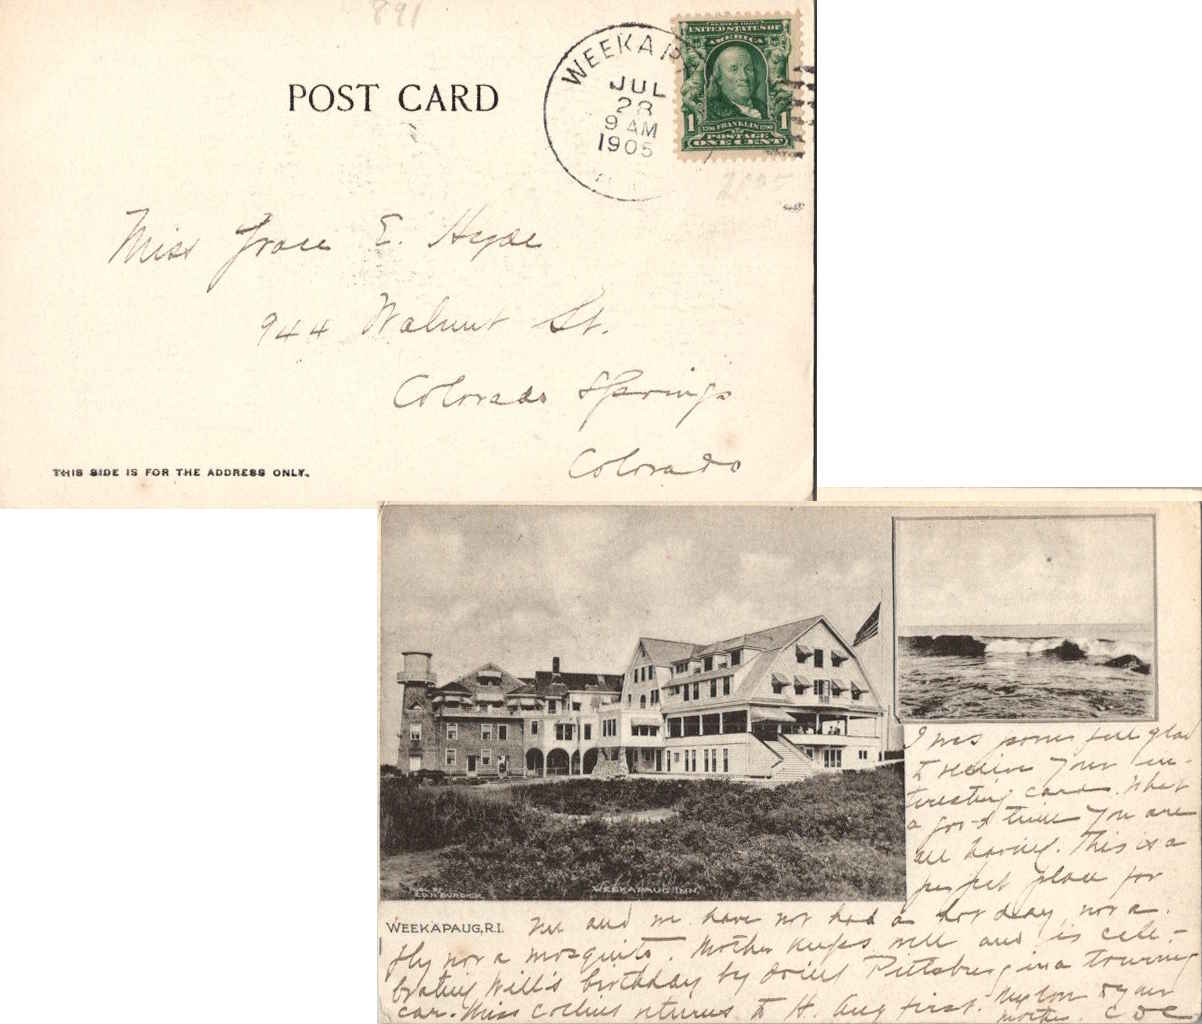 891
POST CARD
WEEKAP
JUL
28
9 AM
1905
UNITED STATES OF
AMERICA
1 FRANKLIN 1
POSTAGE
ONE CENT
Miss Grace E. Hyde
944 Walnut St.
Colorado Springs
Colorado
THIS SIDE IS FOR THE ADDRESS ONLY.
PUBL. BY
BURDICK
WEEKAPAUG INN.
WEEKAPAUG, R.I.
I was glad
to receive your in-
teresting card. What
a good time you are
all having. This is a
perfect place for
me and we have not had a hot day, nor a
fly nor a mosquito. Mother keeps well and is cele-
brating Will's birthday by doing Pittsburg in a touring
car. Miss Collins returns to H. Aug first. My love to your
mother. C D C